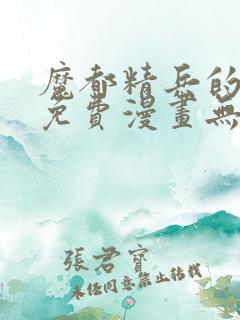 魔都精兵的
免費漫畫無
張君寶
未經同意禁止轉載